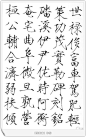 世祿侈富車駕肥輕
策功茂實勒碑刻銘
磻溪伊尹佐時阿衡
奄宅曲阜微旦孰營
桓公輔合濟弱扶傾